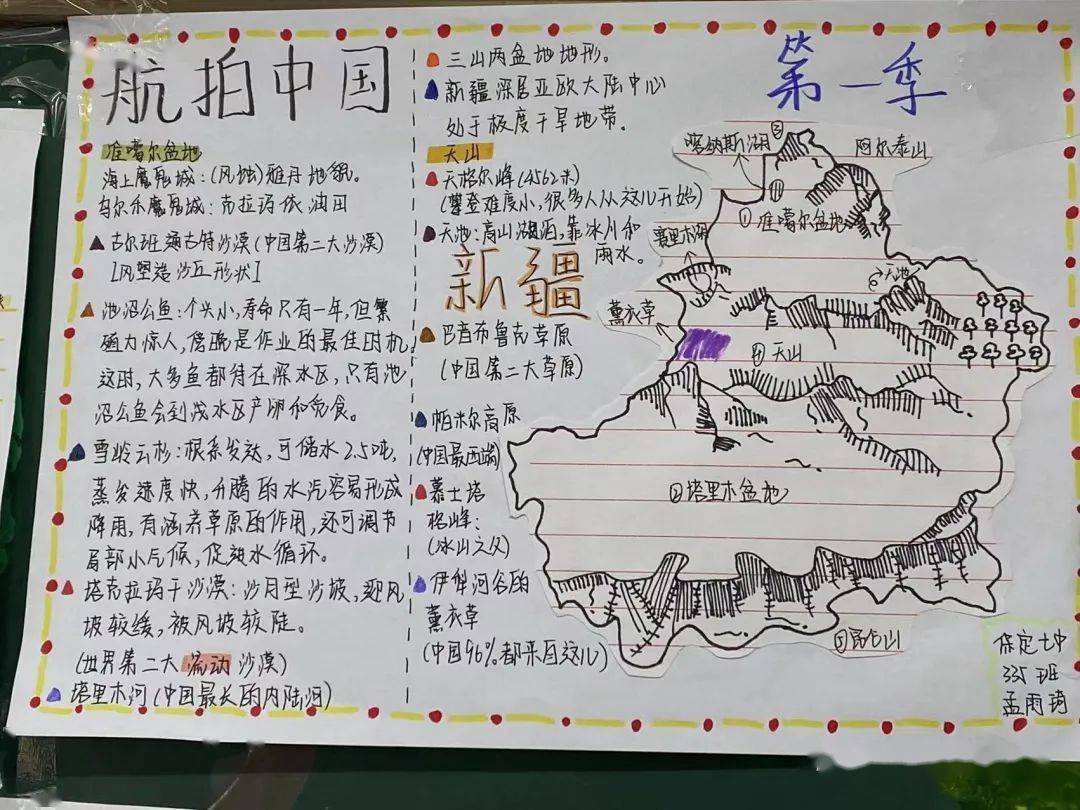 航拍中国
准噶尔盆地
海上魔鬼城:(风蚀)雅丹地貌。
乌尔禾魔鬼城:克拉玛依油田
古尔班通古特沙漠(中国第二大沙漠)
[风塑造沙丘形状]
池沼公鱼:个头小,寿命只有一年,但繁
殖力惊人,傍晚是作业的最佳时机,
这时,大多鱼都待在深水区,只有池
沼公鱼会到浅水区产卵和觅食。
雪岭云杉:根系发达,可储水2.5吨,
蒸发速度快,分腾的水汽容易形成
降雨,有涵养草原的作用,还可调节
局部小气候,促进水循环。
塔克拉玛干沙漠:沙月型沙坡,迎风
坡较缓,被风坡较陡。
(世界第二大流动沙漠)
塔里木河(中国最长的内陆河)
三山两盆地地形。
新疆深居亚欧大陆中心
处于极度干旱地带。
天山
天格尔峰(4562米)
(攀登难度小,很多人从这儿开始)
天池:高山湖泊,靠冰川和
雨水。
新疆
巴音布鲁克草原
(中国第二大草原)
帕米尔高原
(中国最西端)
慕士塔
格峰:
(冰山之父)
伊犁河谷的
薰衣草
(中国96%都来自这儿)
第一季
喀纳斯湖
③
阿尔泰山
①准噶尔盆地
赛里木湖
天池
薰衣草
④天山
②塔里木盆地
⑤昆仑山
保定七中
335班
孟雨琦